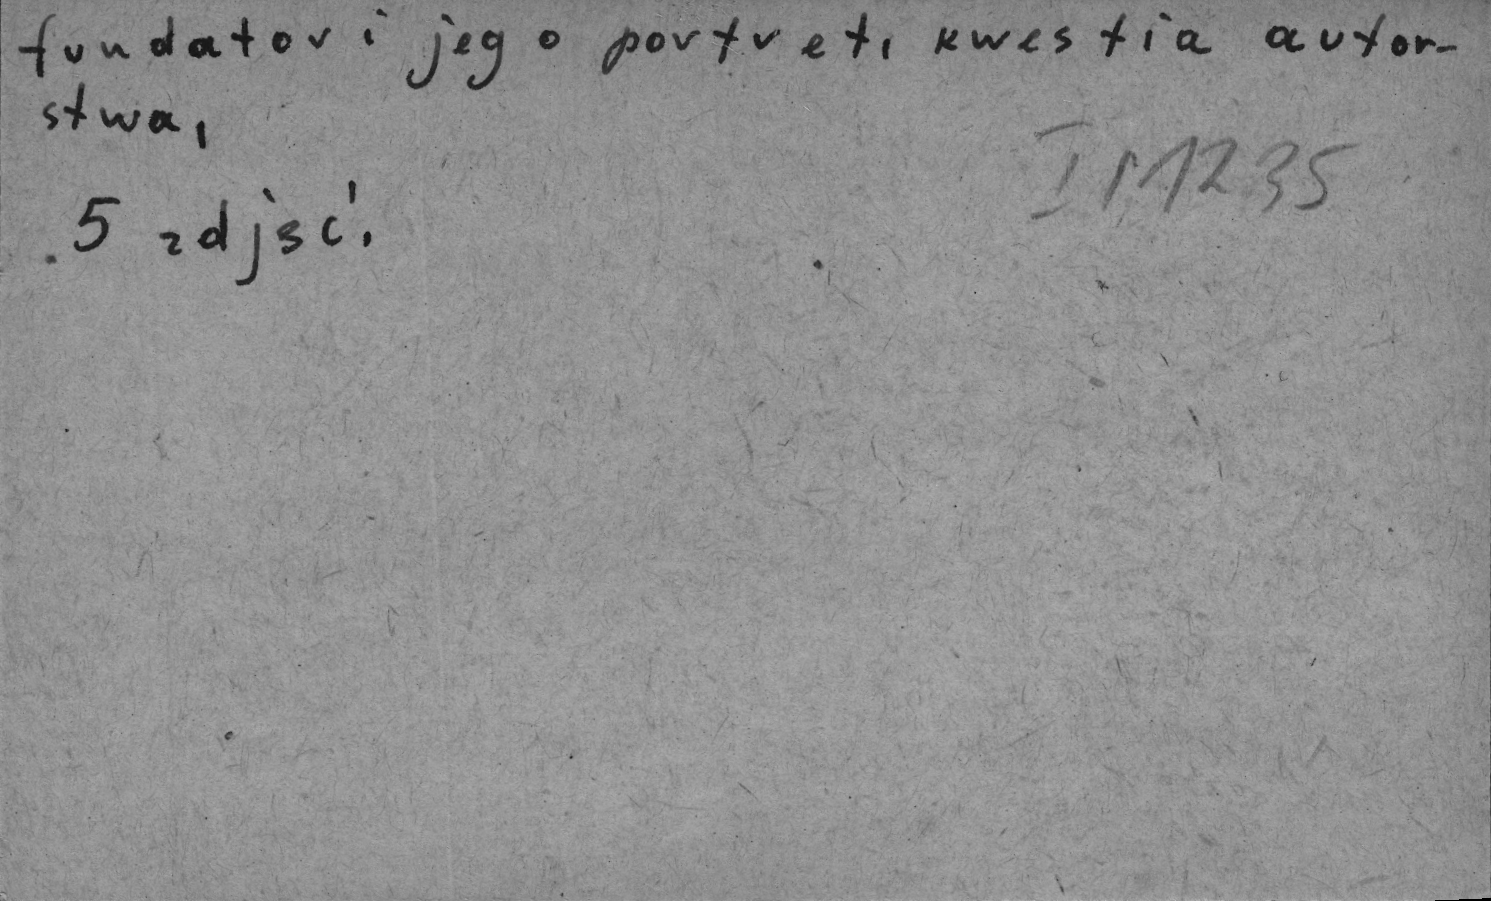 fundator i jego portret, kwestia autor-
stwa,
5 zdjęć.
II 1235